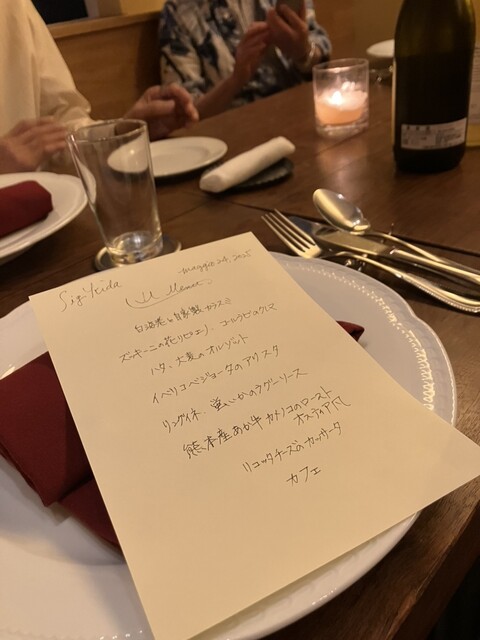 maggio 24, 2025
Sig. Ikida
Il Menu
白海老と自家製カラスミ
ズッキーニの花リピエノ、コールラビとクルマ
ハタ、大麦のオルゾット
イベリコベジョータのアリスタ
リングイネ、蛍いかのラグーソース
熊本産あか牛カメノコのロースト
オスティア風
リコッタチーズのカッサータ
カフェ